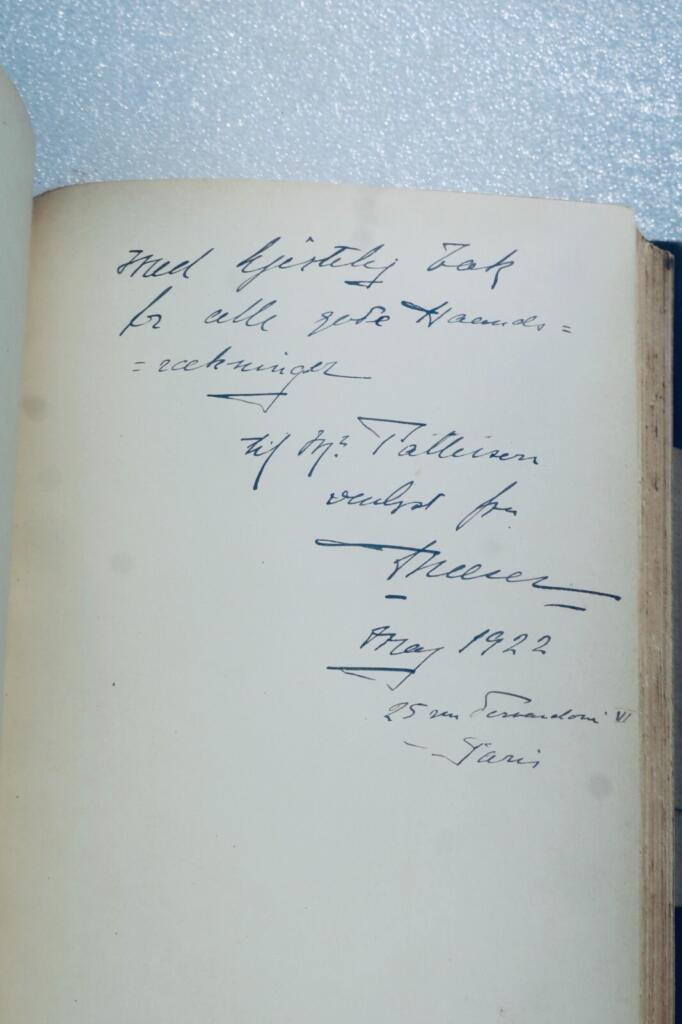 med hjertelig Tak
for alle gode Haands=
=rækninger
til Mr.
venligst fra
May 1922
25 rue Servandoni VI
Paris